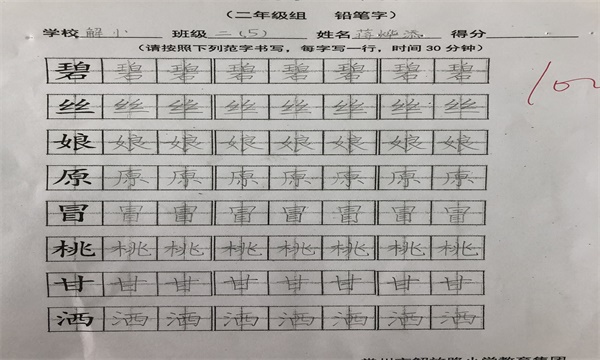 (二年级组 铅笔字)
学校 解小 班级 二(5) 姓名 蒋烨添 得分
(请按照下列范字书写，每字写一行，时间30分钟)
碧 碧 碧 碧 碧 碧 碧 碧
丝 丝 丝 丝 丝 丝 丝 丝
娘 娘 娘 娘 娘 娘 娘 娘
原 原 原 原 原 原 原 原
冒 冒 冒 冒 冒 冒 冒 冒
桃 桃 桃 桃 桃 桃 桃 桃
甘 甘 甘 甘 甘 甘 甘 甘
洒 洒 洒 洒 洒 洒 洒 洒
常州市解放路小学教育集团